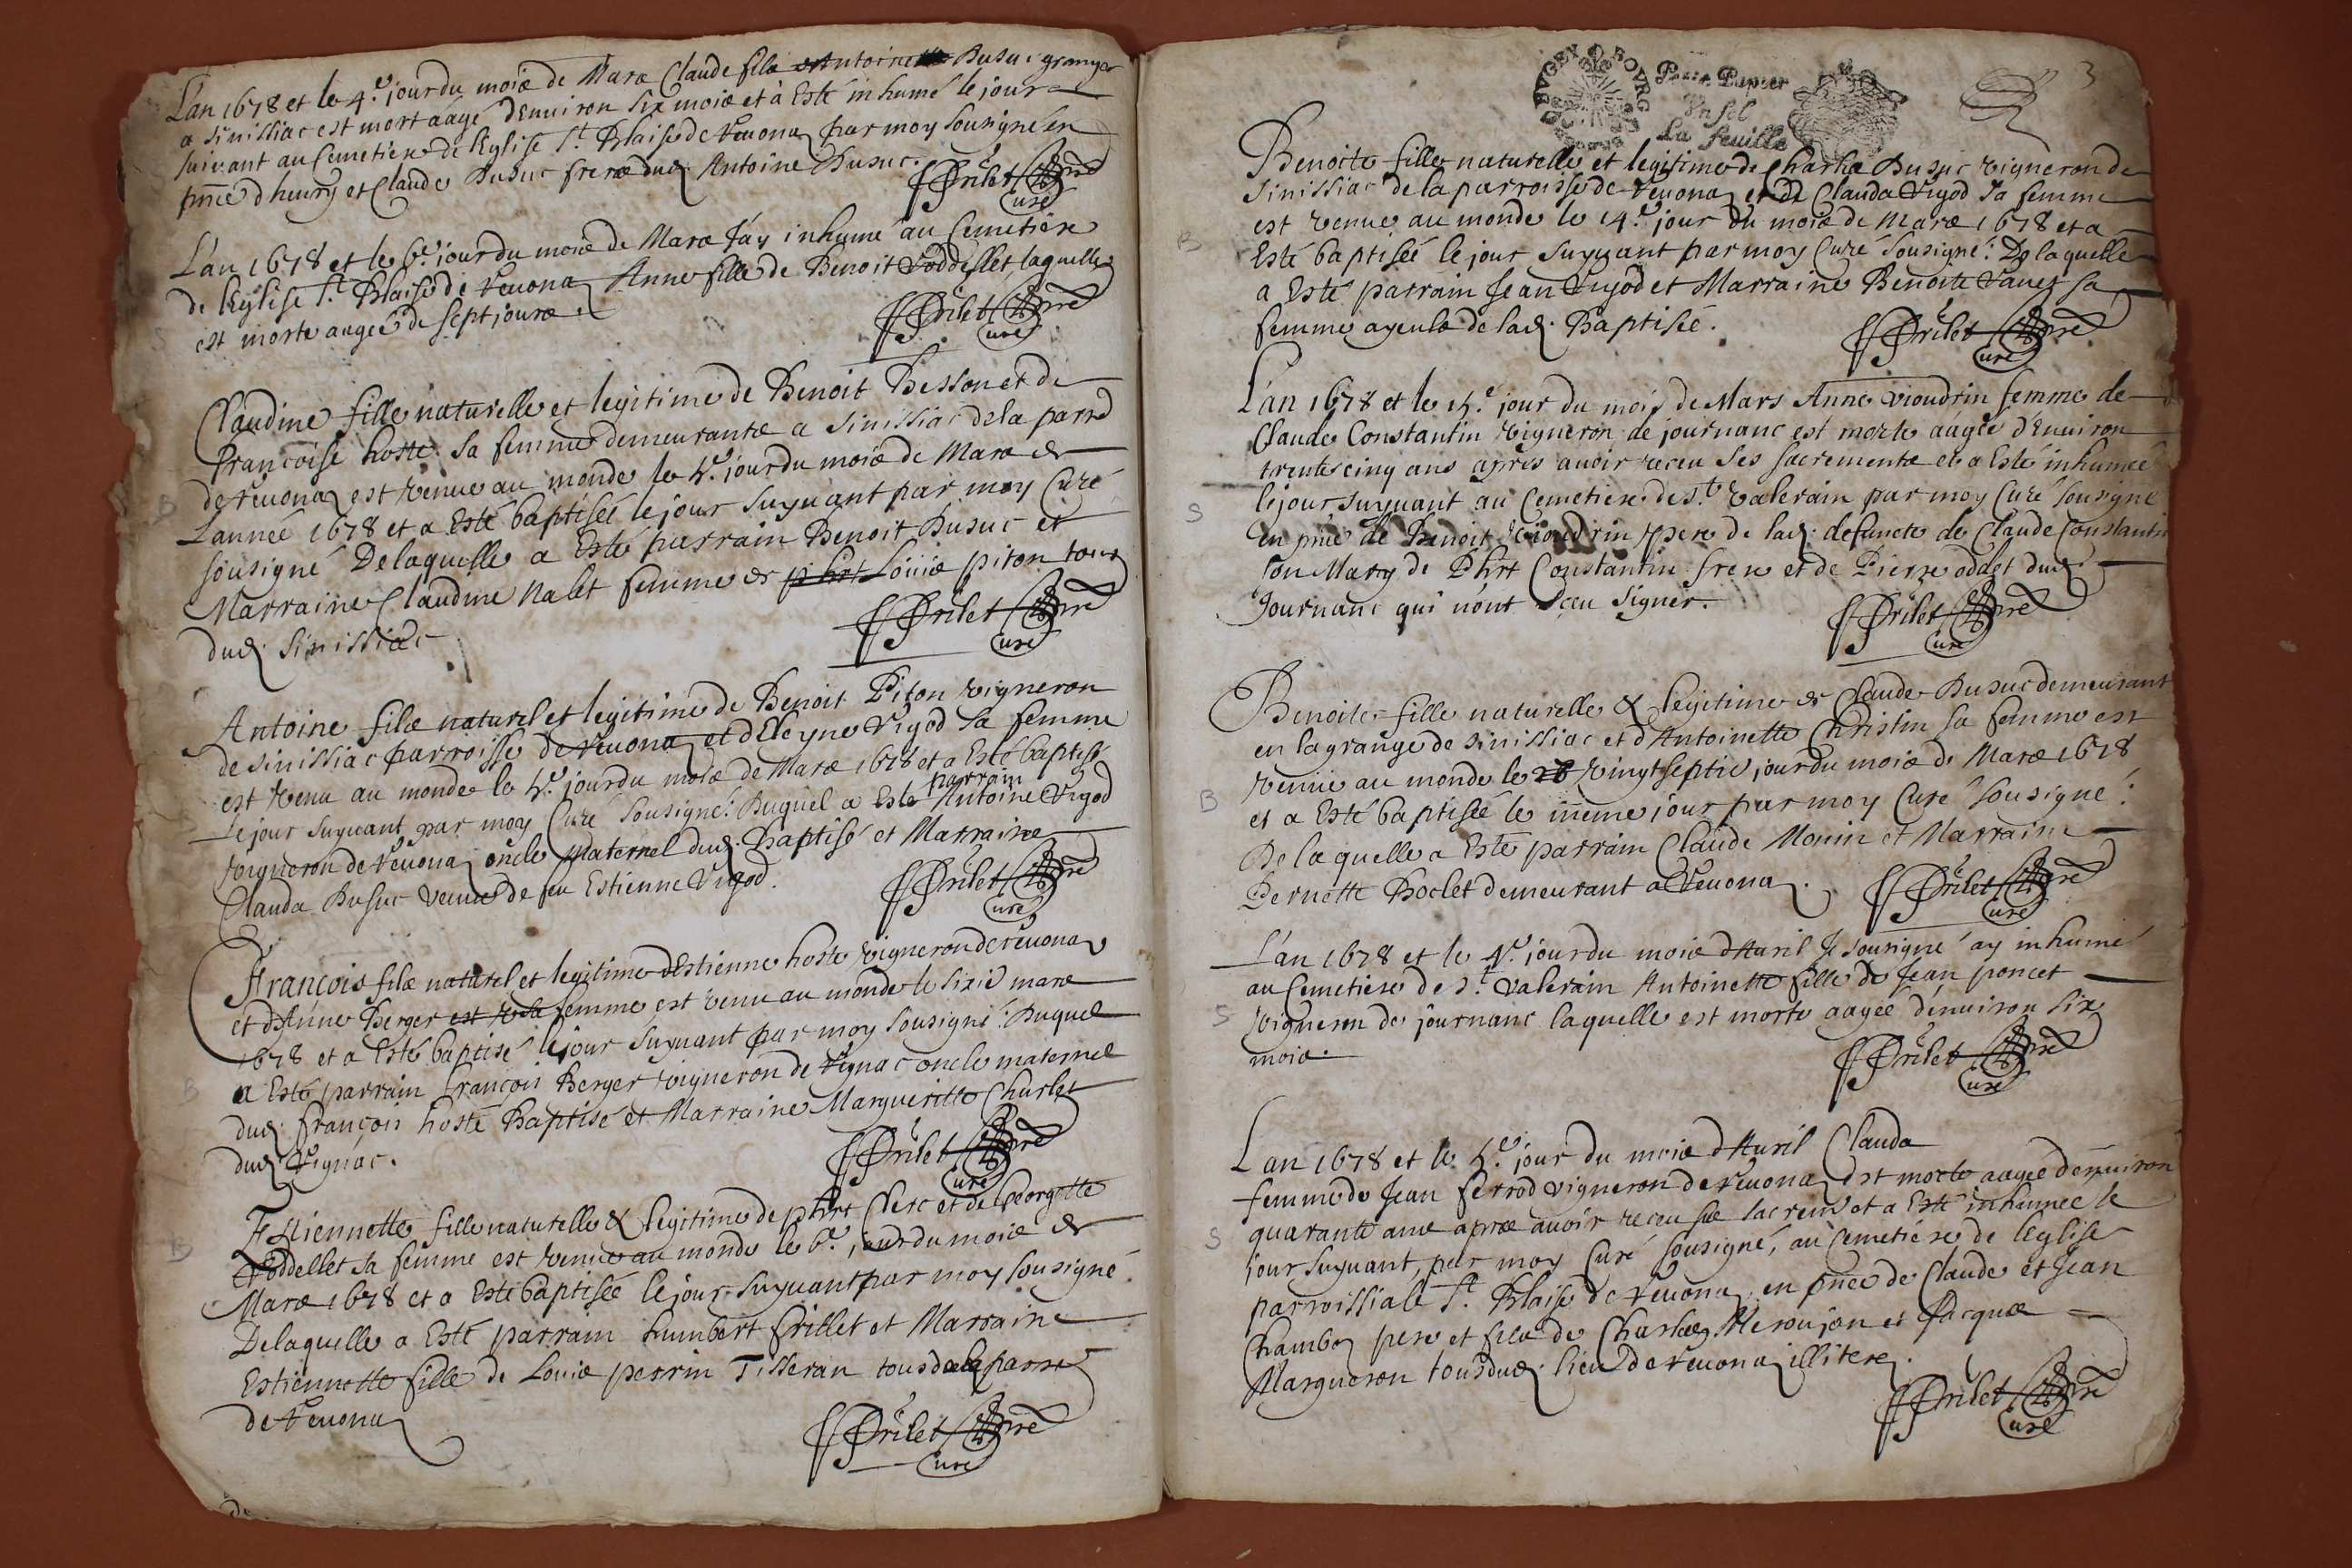 L'an 1678 et le 4.e jour du mois de Mars Claude fils d'Antoine Dusuc granger
a Sinissiac est mort aagé d'Enuiron six mois et à Esté inhumé le jour
suivant au Cemetiere de l'Eglise St. Blaise de Reuonaz par moy sousigné en
pñce d'heury et Claude Dusuc freres dud. Antoine Dusuc.
Drilet pre
Curé
L'an 1678 et le 6.e jour du mois de Mars J'ay inhumé au Cemetiere
de l'Eglise St. Blaise de Reuonaz Anne fille de Benoit Voddellet, laquelle
est morte aagée de sept jours.
Drilet pre
Curé
Claudine fille naturelle et legitime de Benoit Besson et de
françoise hoste sa femme demeurants a Sinissiac de la parre
de Reuonaz est venue au monde le 5.e jour du mois de Mars de
L'année 1678 et a Esté baptisée le jour suyuant par moy Curé
sousigné De laquelle a Esté parrain Benoit Dusuc et
Marraine Claudine Nalet femme de phrt Loüis piton tous
dud. Sinissiac
Drilet pre
Curé
Antoine fils naturel et legitime de Benoit Piton vigneron
de Sinissiac parroisse de Reuonaz et d'Eleyne Vigod sa femme
est venu au monde le 5.e jour du mois de Mars 1678 et a Esté baptisé
le jour suyuant par moy Curé sousigné: Duquel a Esté parrain Antoine Vigod
vigneron de Reuonaz oncle maternel dud. Baptisé et Marraine
Clauda Dusuc veuue de feu Estienne Vigod.
Drilet pre
Curé
François fils naturel et legitime d'Estienne hoste vigneron de reuonaz
et d'Anne Berger est sa femme est venu au monde le sixie mars
1678 et a Esté baptisé le jour suyuant par moy sousigné: Duquel
a Esté parrain françois Berger vigneron de Rignac oncle maternel
dud. françois hoste Baptisé et Marraine Margueritte Charlet
dud. Rignac.
Drilet pre
Curé
Estiennette fille naturelle & legitime de phrt Clerc et de Georgette
Voddellet sa femme est venue au monde le 6.e jour du mois de
Mars 1678 et a Esté baptisée le jour suyuant par moy sousigné.
De laquelle a Esté parrain humbert Grillet et Marraine
Estiennette fille de Louis perrin Tisseran tous de la parre
de Reuonaz
Drilet pre
Curé
BVGEY BOVRG
Petit Papier
Vn sol
La feuille
3
Benoite fille naturelle et legitime de Charles Dusuc vigneron de
Sinissiac de la parroisse de Reuonaz et de Clauda Vigod sa femme
est venue au monde le 14.e jour du mois de Mars 1678 et a
Esté baptisée le jour suyuant par moy Curé sousigné: De laquelle
a Esté parrain Jean Vigod et Marraine Benoite sa
femme ayeuls de lad. Baptisée.
Drilet pre
Curé
L'an 1678 et le 15.e jour du mois de Mars Anne vioudrin femme de
Claude Constantin vigneron de journanc est morte aagée d'Enuiron
trente cinq ans apres auoir receu ses sacrements et a Esté inhumée
le jour suyuant au Cemetiere de St. Valerain par moy Curé sousigné
En pñce de Benoit Vioudrin pere de lad. defuncte de Claude Constantin
son Mary de Phrt Constantin frere et de Pierre oddet dud.
Journanc qui n'ont sceu signer.
Drilet pre
Curé
Benoite fille naturelle & legitime de Claude Dusuc demeurant
en la grange de Sinissiac et d'Antoinette Christin sa femme est
venüe au monde le 26 vingt septie jour du mois de Mars 1678
et a Esté baptisée le mème jour par moy Curé sousigné:
De laquelle a Esté parrain Claude Monin et Marraine
Pernette Boclet demeurant a Reuonaz.
Drilet pre
Curé
L'an 1678 et le 4.e jour du mois d'Auril Je sousigné ay inhumé
au Cemetiere de St. Valerain Antoinette fille de Jean poncet
vigneron de journanc laquelle est morte aagée d'enuiron six
mois.
Drilet pre
Curé
L'an 1678 et le 5.e jour du mois d'Auril Clauda
femme de Jean ferrod vigneron de Reuonaz est morte aagée d'enuiron
quarante ans apres auoir receu ses sacremts et a Esté inhumée le
jour suyuant, par moy Curé sousigné, au Cemetiére de l'Eglise
parroissiale St. Blaise de Reuonaz en pñce de Claude et Jean
Chamboz pere et fils de Charles Meroujon et Jacques
Margueron tous dud. lieu de Reuonaz illiteréz.
Drilet pre
Curé